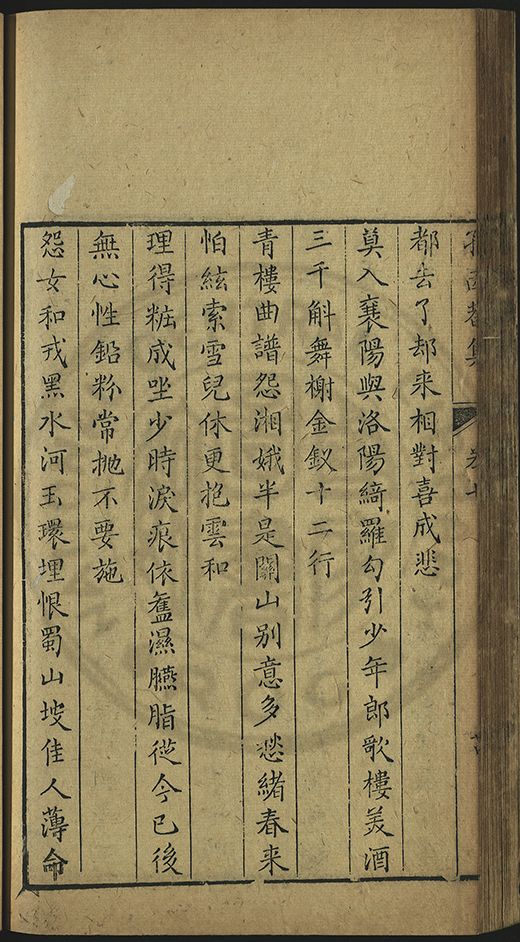 都去了却来相對喜成悲
莫入襄陽與洛陽綺羅勾引少年郎歌樓美酒
三千斛舞榭金釵十二行
青樓曲譜怨湘娥半是關山别意多愁緒春来
怕絃索雪兒休更抱雲和
理得粧成坐少時淚痕依舊濕臙脂從今已後
無心性鉛粉常拋不要施
怨女和戎黑水河玉環埋恨蜀山坡佳人薄命